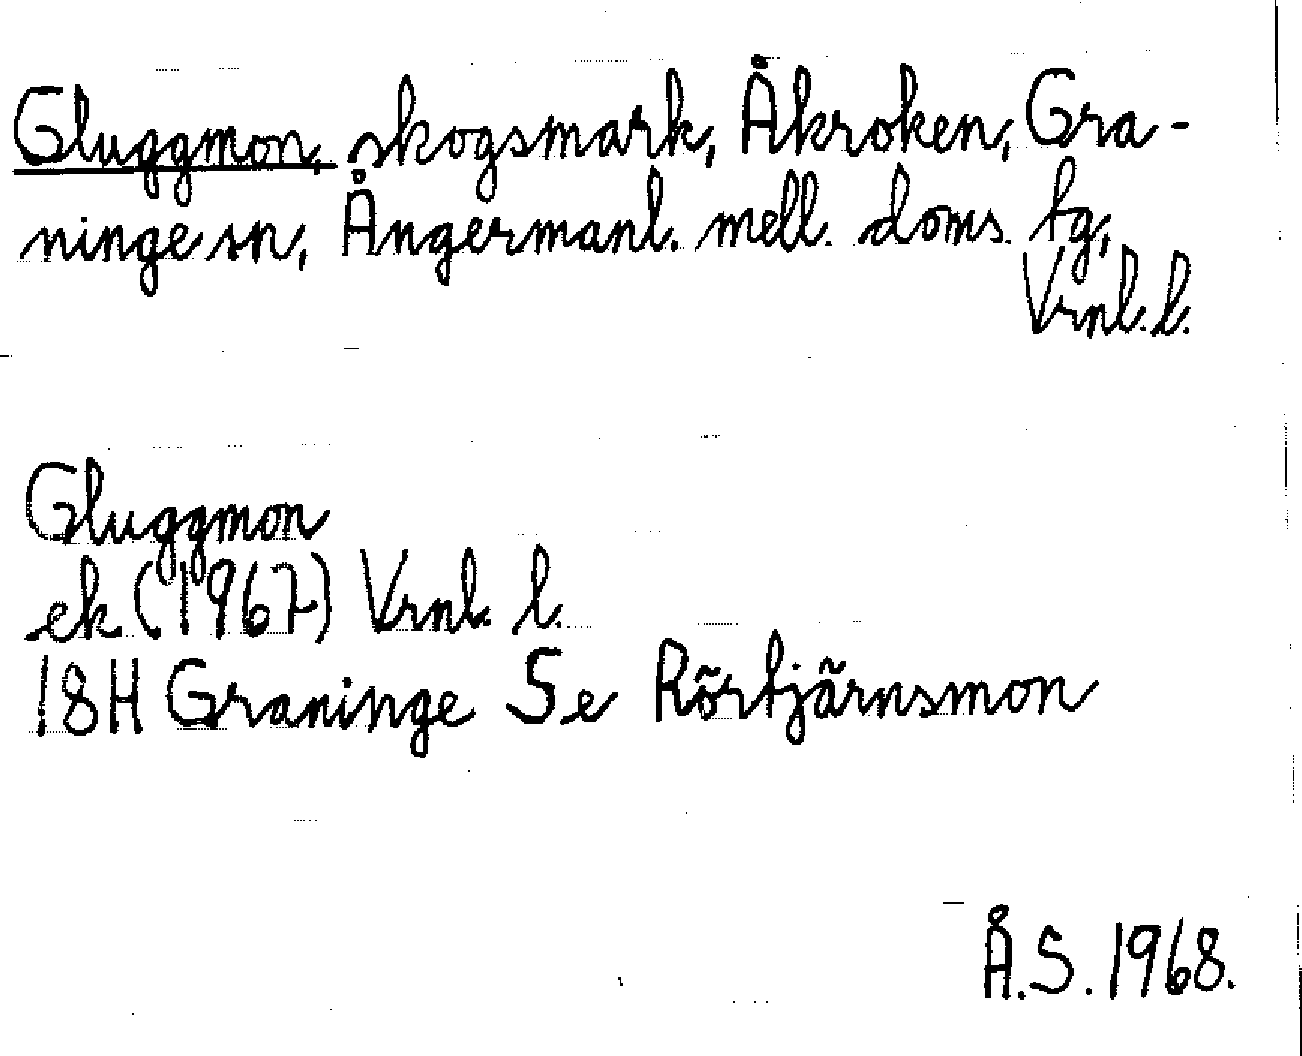 Gluggmon, skogsmark, Åkroken, Gra-
ninge sn, Ångermanl. mell. doms. tg,
Vrnl. l.
Gluggmon
ek (1967) Vrnl. l.
18H Graninge Se Rörtjärnsmon
Å.S. 1968.